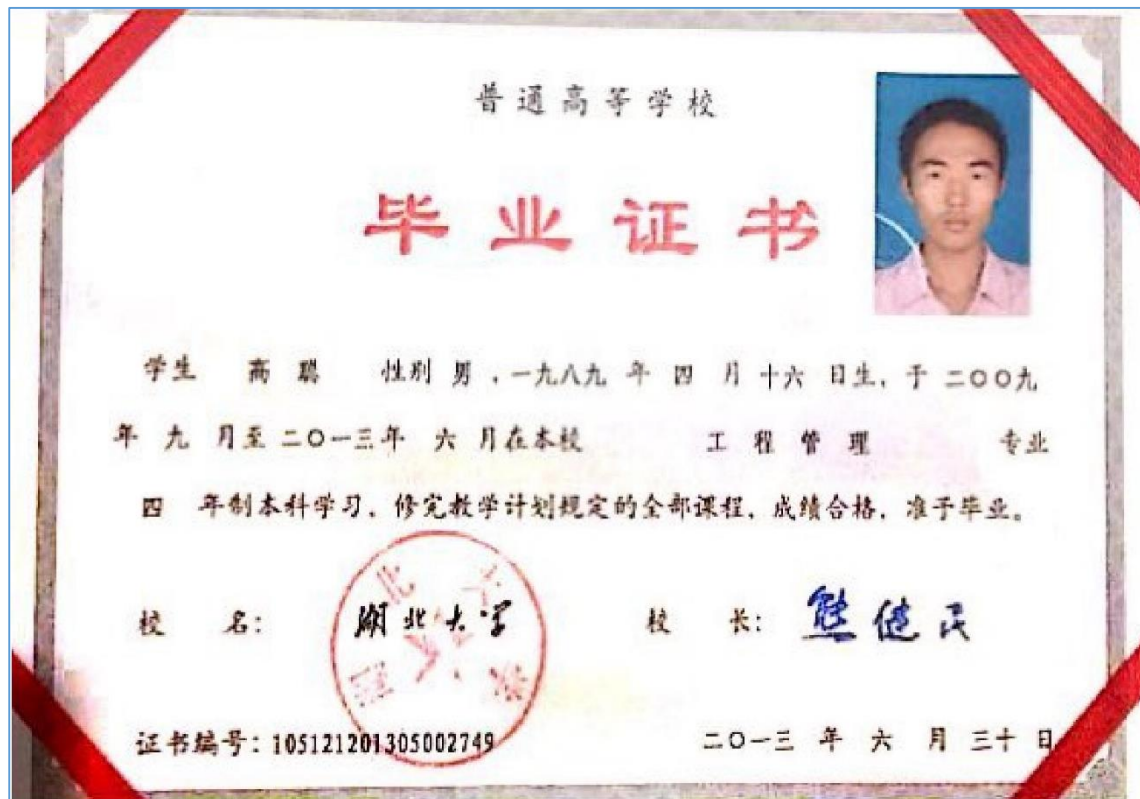 普通高等学校
毕业证书
学生 高聪 性别 男，一九八九 年 四 月 十六 日生，于 二〇〇九
年 九 月至 二〇一三年 六 月在本校 工程管理 专业
四 年制本科学习，修完教学计划规定的全部课程，成绩合格，准于毕业。
校 名： 湖北大学 校 长： 熊健民
证书编号：105121201305002749 二〇一三 年 六 月 三十 日